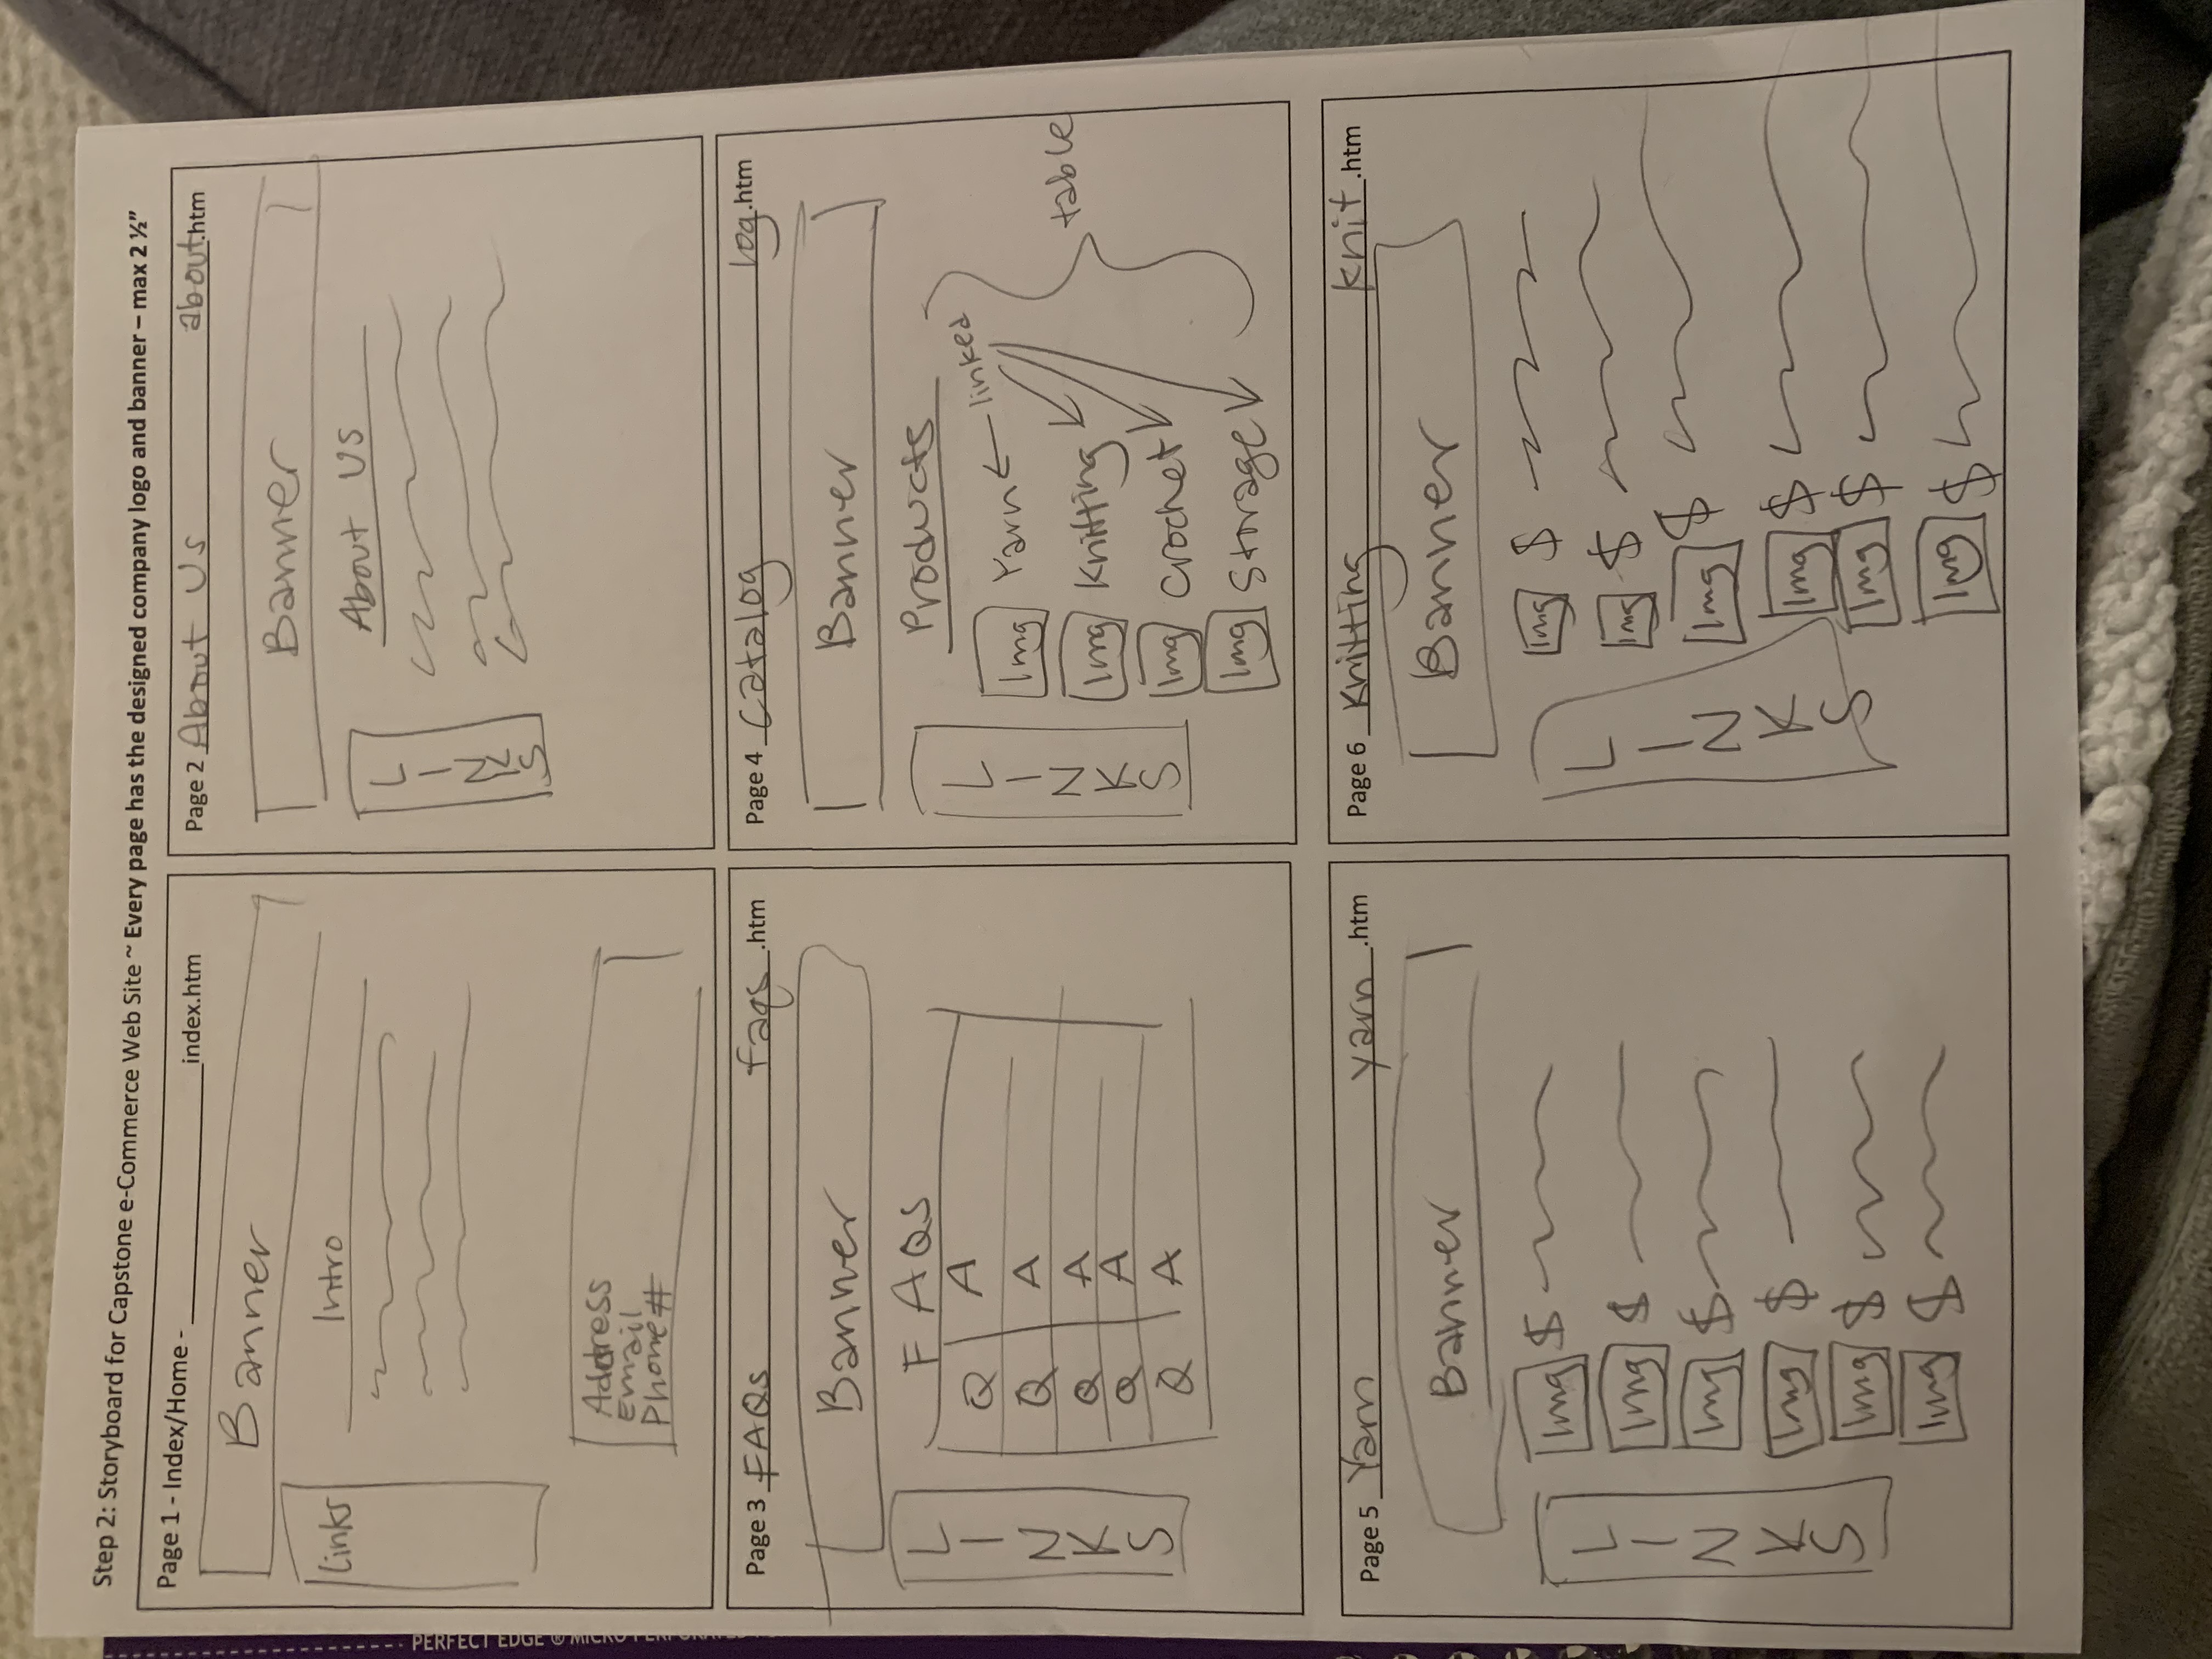 Step 2: Storyboard for Capstone e-Commerce Web Site ~ Every page has the designed company logo and banner – max 2 ½”
Page 1 - Index/Home - ____________________index.htm
Banner
Links
Intro
Address
Email
Phone #
Page 2 About Us about.htm
Banner
About US
L
I
N
K
S
Page 3 FAQs faqs.htm
Banner
FAQS
L
I
N
K
S
Q A
Q A
Q A
Q A
Q A
Page 4 Catalog log.htm
Banner
Products
L
I
N
K
S
Img Yarn ← linked
Img Knitting
Img Crochet
Img Storage
table
Page 5 Yarn yarn.htm
Banner
L
I
N
K
S
Img $
Img $
Img $
Img $
Img $
Img $
Page 6 Knitting knit.htm
Banner
L
I
N
K
S
Img $
Img $
Img $
Img $
Img $
Img $
PERFECT EDGE ®